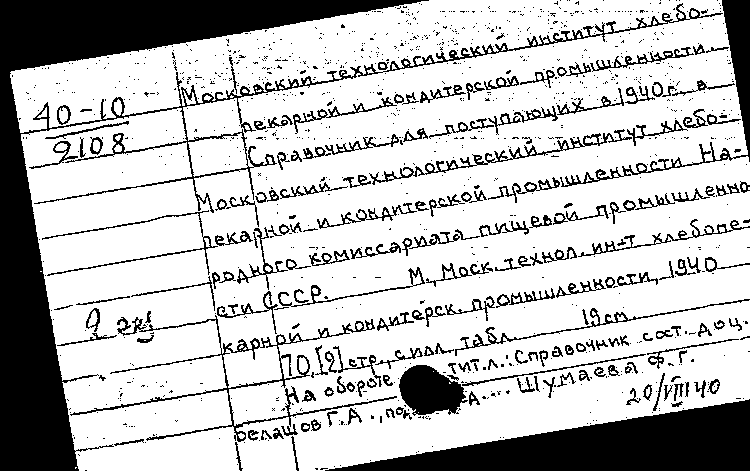 40-10
9108
2 экз
Московский технологический институт хлебо-
пекарной и кондитерской промышленности.
Справочник для поступающих в 1940 г. в
Московский технологический институт хлебо-
пекарной и кондитерской промышленности На-
родного комиссариата пищевой промышленно
сти СССР. М., Моск. технол. ин-т хлебопе-
карной и кондитерск. промышленности, 1940
70,[2] стр., с илл., табл. 19 см.
На обороте тит. л.: Справочник сост. доц.
Белашов Г.А., Шумаева Ф.Г.
20/VIII 40